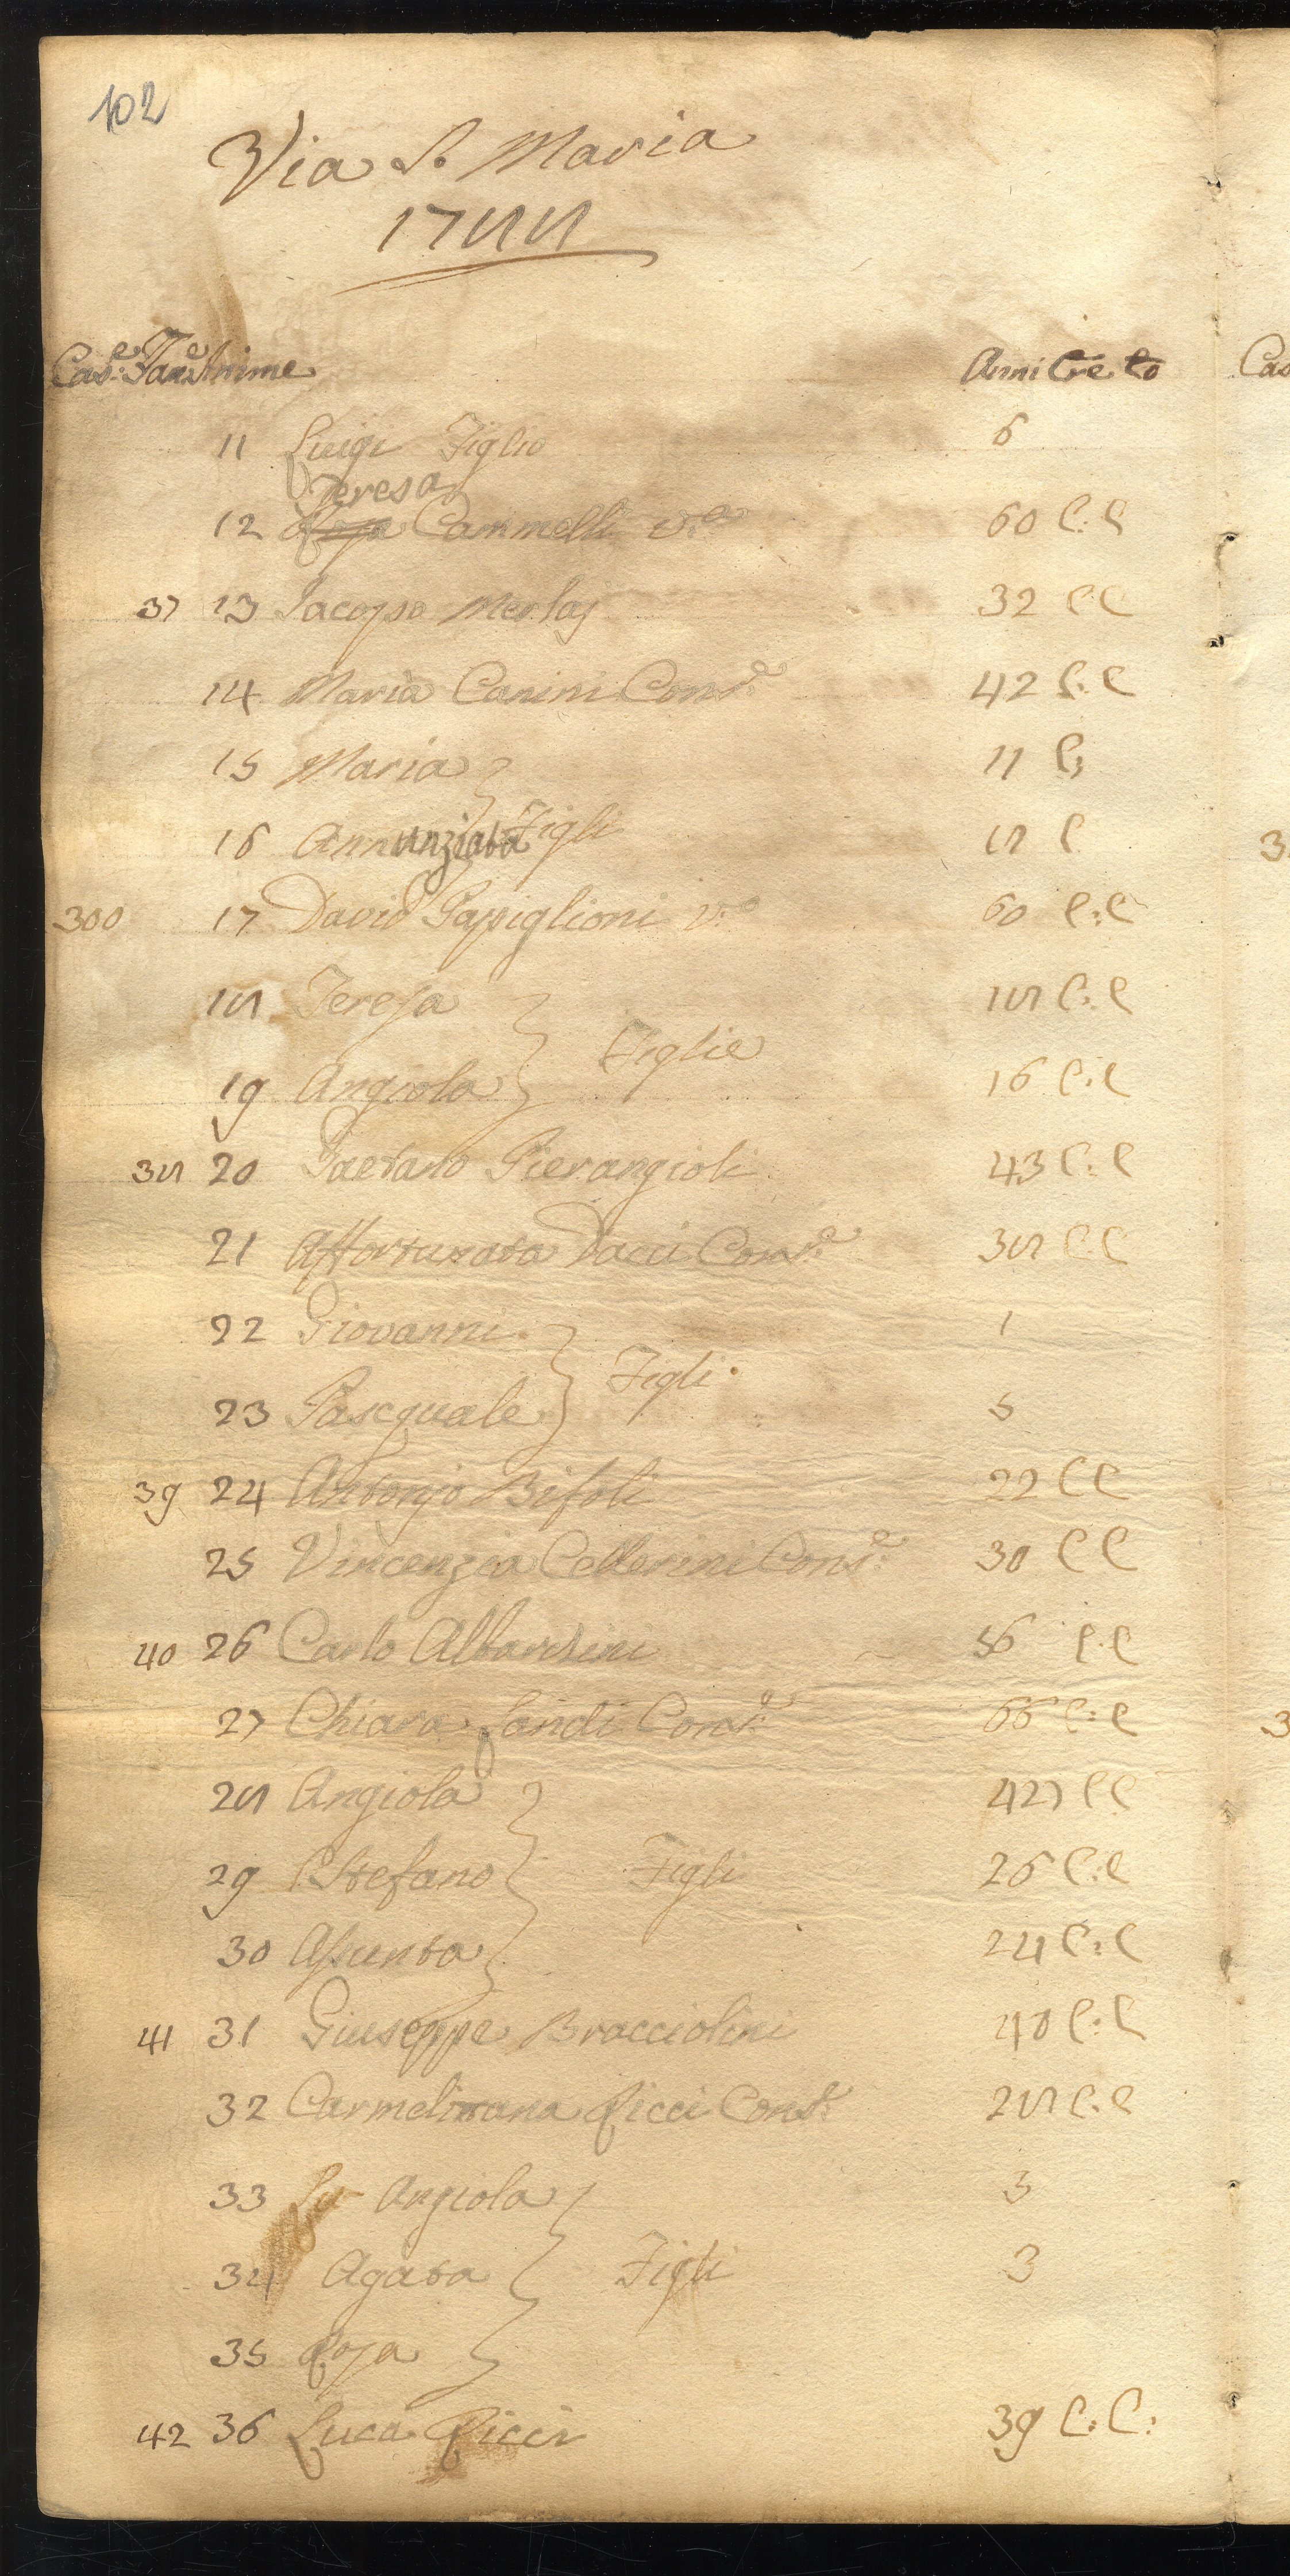 102
Via S. Maria
1788
Case Fam.e Anime Anni Cre Co
11 Luigi Figlio 6
Teresa
12 Rosa Cammelli v.a 60 C: C
37 13 Jacopo Merlaj 32 C C
14 Maria Canini Cons.e 42 C: C
15 Maria 11 C:
16 Annunziata Figli 18 C
300 17 David Papiglioni v.o 60 C: C
18 Teresa 18 C: C
Figlie
19 Angiola 16 C: C
38 20 Gaetano Pierangioli 43 C: C
21 Affortunata Dacci Cons.e 38 C C
22 Giovanni 1
Figli
23 Pascquale 5
39 24 Antonjo Bifoli 22 C C
25 Vincenzia Cellerini Cons.e 30 C C
40 26 Carlo Albardini 56 C C
27 Chiara Landi Cons.e 66 C: C
28 Angiola 42 C C
29 Stefano Figli 26 C: C
30 Assunta 24 C: C
41 31 Giuseppe Bracciolini 40 C: C
32 Carmelitana Ricci Cons.e 28 C: C
33 Lu Angiola 3
34 Agata Figli 3
35 Rosa
42 36 Luca Ricci 39 C: C: